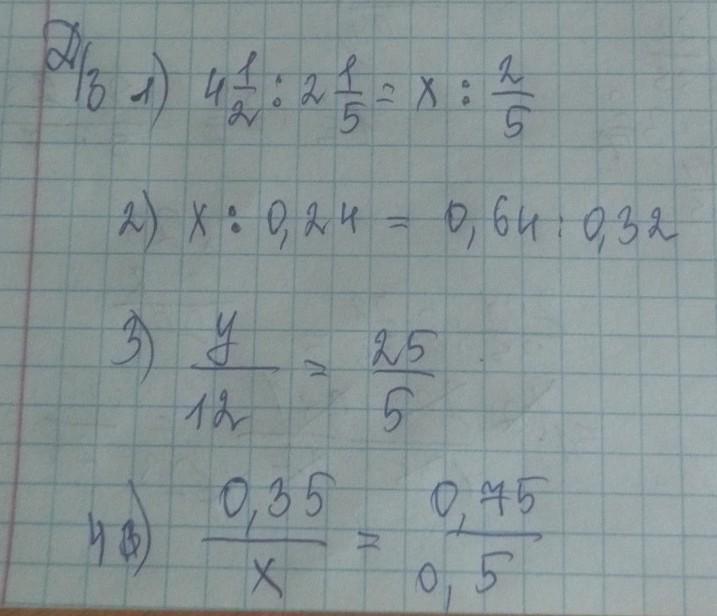 Д/з 1) 4 1/2 : 2 1/5 = x : 2/5
2) x : 0,24 = 0,64 : 0,32
3) y/12 = 25/5
4) 0,35/x = 0,75/0,5